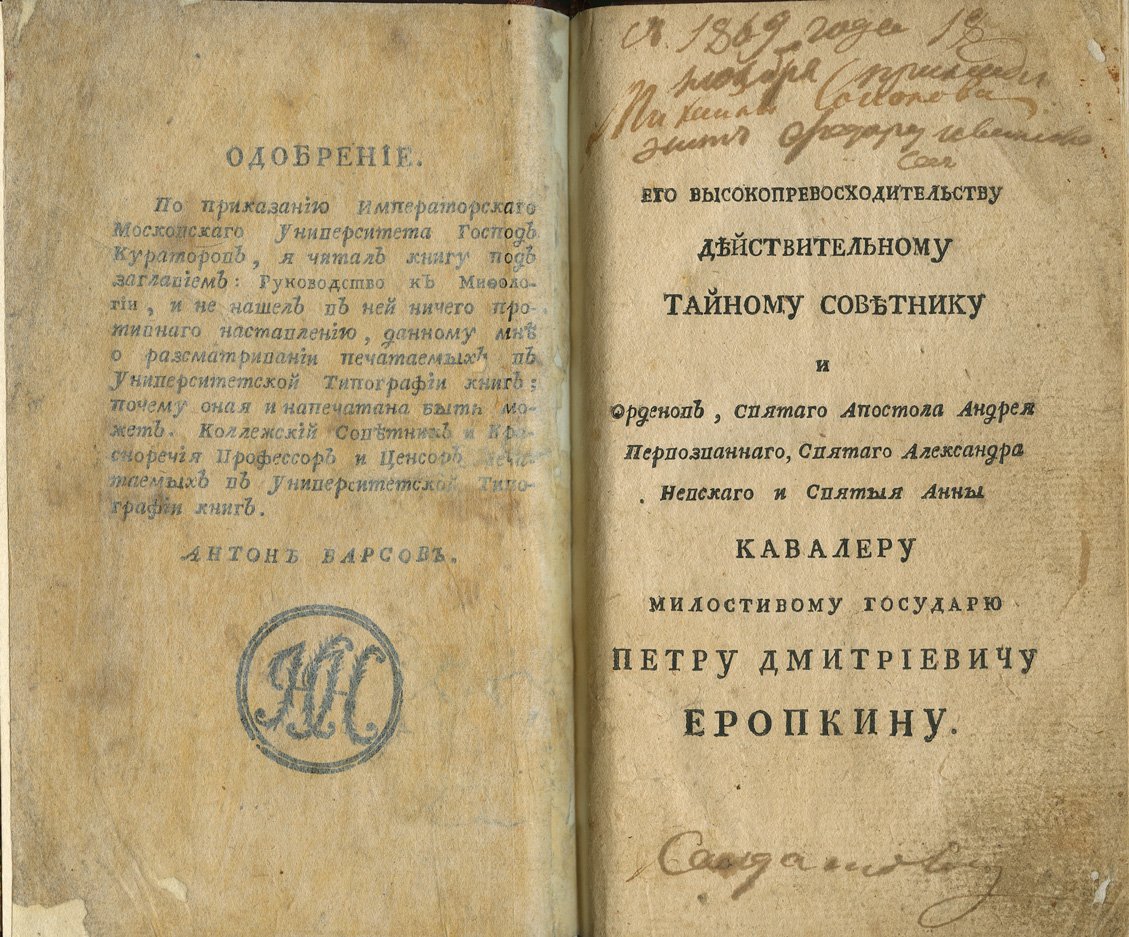 ОДОБРЕНІЕ.
По приказанію Императорскаго
Московскаго Университета Господъ
Кураторовъ, я читалъ книгу подъ
заглавіемъ: Руководство къ Миѳоло-
гіи, и не нашелъ въ ней ничего про-
тивнаго наставленію, данному мнѣ
о разсматриваніи печатаемыхъ въ
Университетской Типографіи книгъ;
почему оная и напечатана быть мо-
жетъ. Коллежскій Совѣтникъ и Кра-
сноречія Профессоръ и Ценсоръ печа-
таемыхъ въ Университетской Типо-
графіи книгъ.
АНТОНЪ БАРСОВЪ.
1869 года 19
ноября
Михаила Соколова
ЕГО ВЫСОКОПРЕВОСХОДИТЕЛЬСТВУ
ДѢЙСТВИТЕЛЬНОМУ
ТАЙНОМУ СОВѢТНИКУ
И
Орденовъ, Святаго Апостола Андрея
Первозваннаго, Святаго Александра
Невскаго и Святыя Анны
КАВАЛЕРУ
МИЛОСТИВОМУ ГОСУДАРЮ
ПЕТРУ ДМИТРІЕВИЧУ
ЕРОПКИНУ.